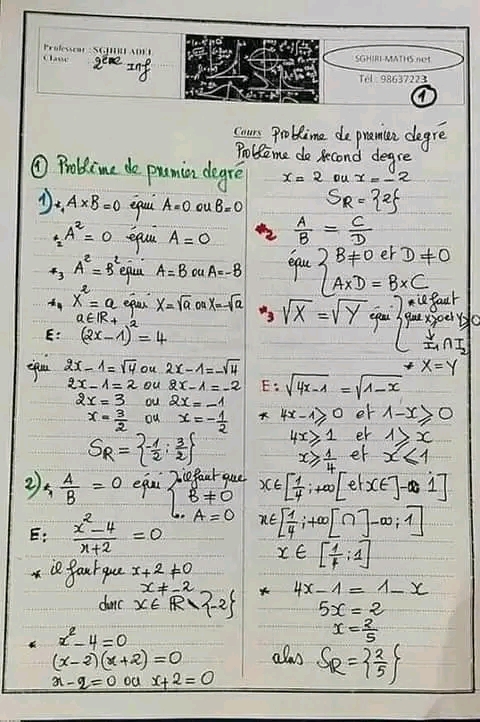 Professeur : SGHIRI ADEL
Classe 2ème Inf
SGHIRI-MATHS.net
Tél : 98637223
1
Cours Problème de premier degré
Problème de second degre
① Problème de premier degré
1) *1 A×B=0 équi A=0 ou B=0
*2 A²=0 équi A=0
*3 A²=B² équi A=B ou A=-B
*4 X²=a équi X=√a ou X=-√a
a∈ℝ+
E: (2x-1)²=4
équi 2x-1=√4 ou 2x-1=-√4
2x-1=2 ou 2x-1=-2
2x=3 ou 2x=-1
x=3/2 ou x=-1/2
Sℝ={-1/2;3/2}
2) *1 A/B=0 équi { il faut que
B≠0
A=0
E: x²-4/x+2=0
* il faut que x+2≠0
x≠-2
donc x∈ℝ\{-2}
* x²-4=0
(x-2)(x+2)=0
x-2=0 ou x+2=0
x=2 ou x=-2
Sℝ={2}
*2 A/B=C/D
équ { B≠0 et D≠0
A×D=B×C
*3 √X=√Y équi { * il faut
que X≥0 et Y≥0
↓
I₁∩I₂
* X=Y
E: √4x-1=√1-x
* 4x-1≥0 et 1-x≥0
4x≥1 et 1≥x
x≥1/4 et x≤1
x∈[1/4;+∞[ et x∈]-∞ 1]
x∈[1/4;+∞[∩]-∞;1]
x∈[1/4;1]
* 4x-1=1-x
5x=2
x=2/5
alors Sℝ={2/5}